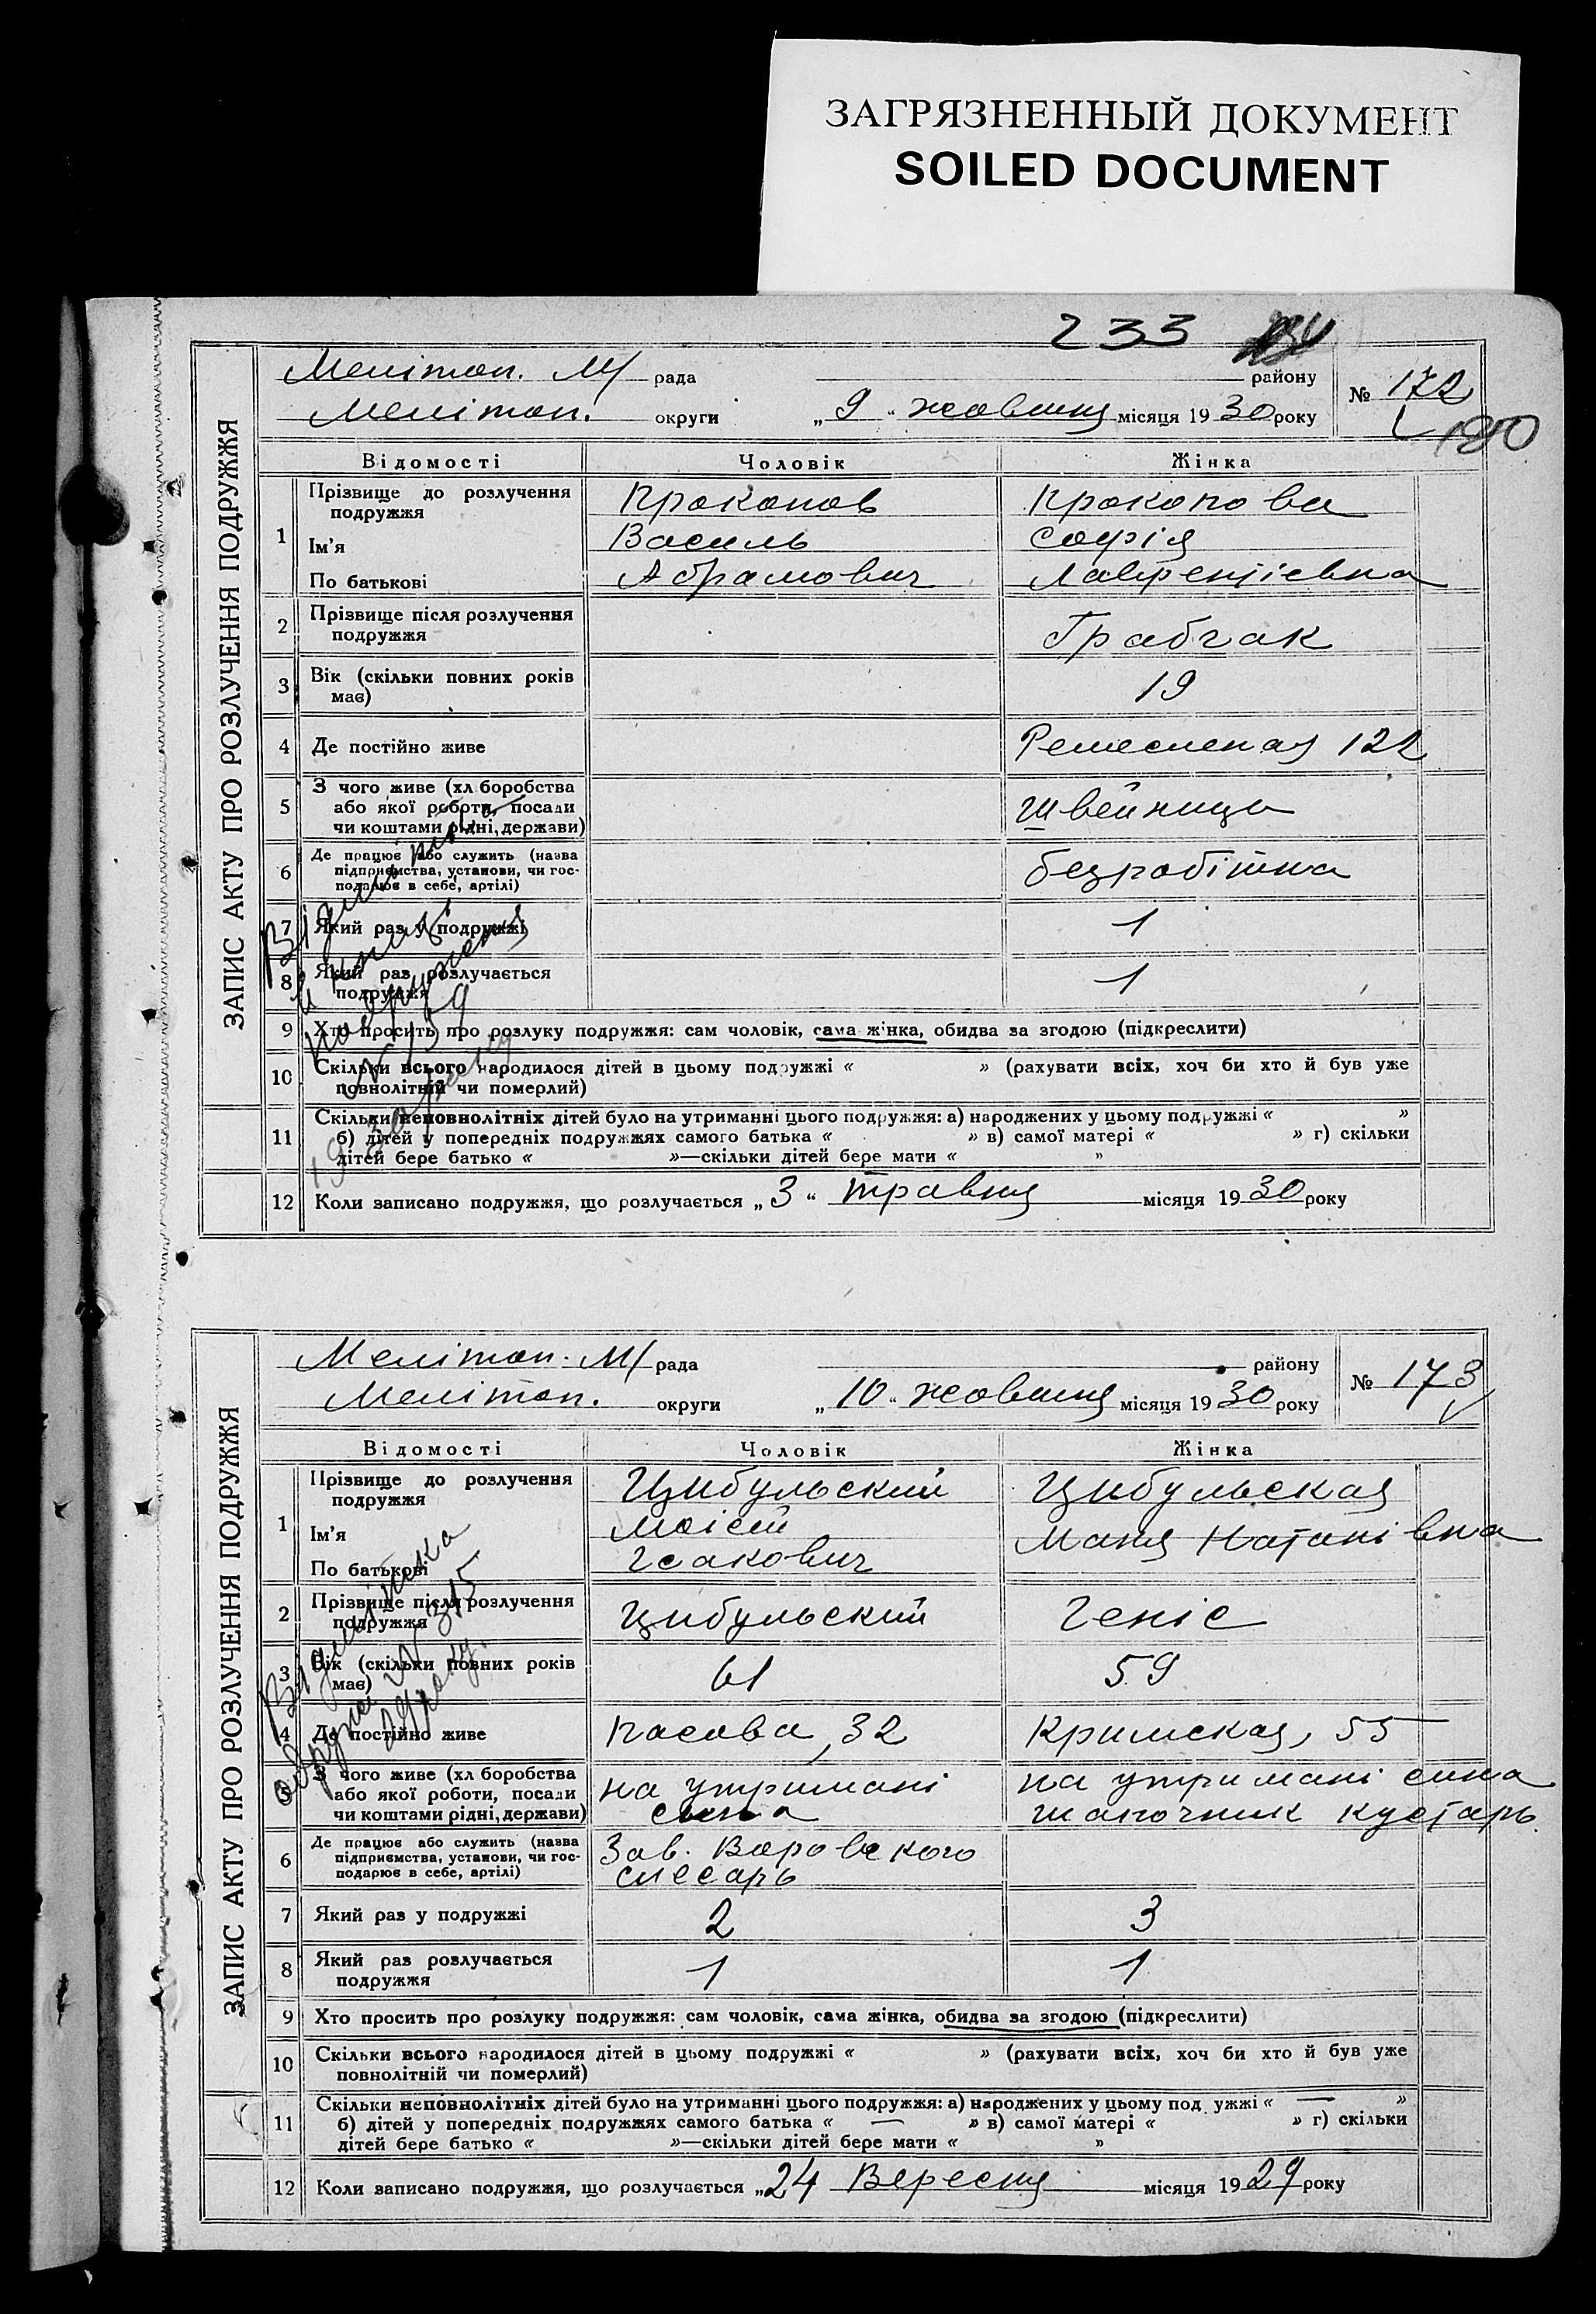 ЗАГРЯЗНЕННЫЙ ДОКУМЕНТ
SOILED DOCUMENT
233
ЗАПИС АКТУ ПРО РОЗЛУЧЕННЯ ПОДРУЖЖЯ
Мелітоп. М/ рада району
№ 172
Мелітоп. округи „9“ жовтня місяця 1930 року
180
Відомості Чоловік Жінка
1 Прізвище до розлучення подружжя Прокопов Прокопова
Ім'я Василь Софія
По батькові Абрамович Лаврентіевна
2 Прізвище після розлучення
подружжя Грабчак
3 Вік (скільки повних років
має) 19
4 Де постійно живе Ремесленая 122
5 З чого живе (хліборобства
або якої роботи, посади
чи коштами рідні, держави) Швейница
6 Де працює або служить (назва
підприємства, установи, чи гос-
подарює в себе, артілі) безробітна
7 Який раз у подружжі 1
8 Який раз розлучається
подружжя 1
9 Хто просить про розлуку подружжя: сам чоловік, сама жінка, обидва за згодою (підкреслити)
10 Скільки всього народилося дітей в цьому подружжі « » (рахувати всіх, хоч би хто й був уже
повнолітній чи померлий)
11 Скільки неповнолітніх дітей було на утриманні цього подружжя: а) народжених у цьому подружжі « »
б) дітей у попередніх подружжях самого батька « » в) самої матері « » г) скільки
дітей бере батько « »—скільки дітей бере мати « »
12 Коли записано подружжя, що розлучається „3“ травня місяця 1930 року
ЗАПИС АКТУ ПРО РОЗЛУЧЕННЯ ПОДРУЖЖЯ
Мелітоп. М/ рада району
№ 173
Мелітоп. округи „10“ жовтня місяця 1930 року
Відомості Чоловік Жінка
1 Прізвище до розлучення
подружжя Цибульский Цибульская
Ім'я Моісей Маня Натанівна
По батькові Ісакович
2 Прізвище після розлучення
подружжя Цибульский Геніс
3 Вік (скільки повних років
має) 61 59
4 Де постійно живе 32 Кримская, 55
5 З чого живе (хліборобства
або якої роботи, посади
чи коштами рідні, держави) на утримані сина на утримані сина шапочник кустарь
6 Де працює або служить (назва
підприємства, установи, чи гос-
подарює в себе, артілі) Зав. Воровского слесарь
7 Який раз у подружжі 2 3
8 Який раз розлучається
подружжя 1 1
9 Хто просить про розлуку подружжя: сам чоловік, сама жінка, обидва за згодою (підкреслити)
10 Скільки всього народилося дітей в цьому подружжі « » (рахувати всіх, хоч би хто й був уже
повнолітній чи померлий)
11 Скільки неповнолітніх дітей було на утриманні цього подружжя: а) народжених у цьому подружжі « — »
б) дітей у попередніх подружжях самого батька « — » в) самої матері « » г) скільки
дітей бере батько « »—скільки дітей бере мати « »
12 Коли записано подружжя, що розлучається „24 Вересня місяця 1929 року